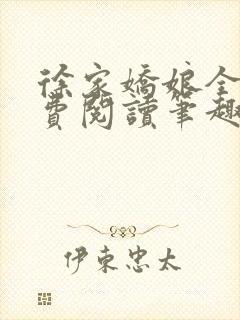 徐家嬌娘全
費閱讀筆趣
伊東忠太